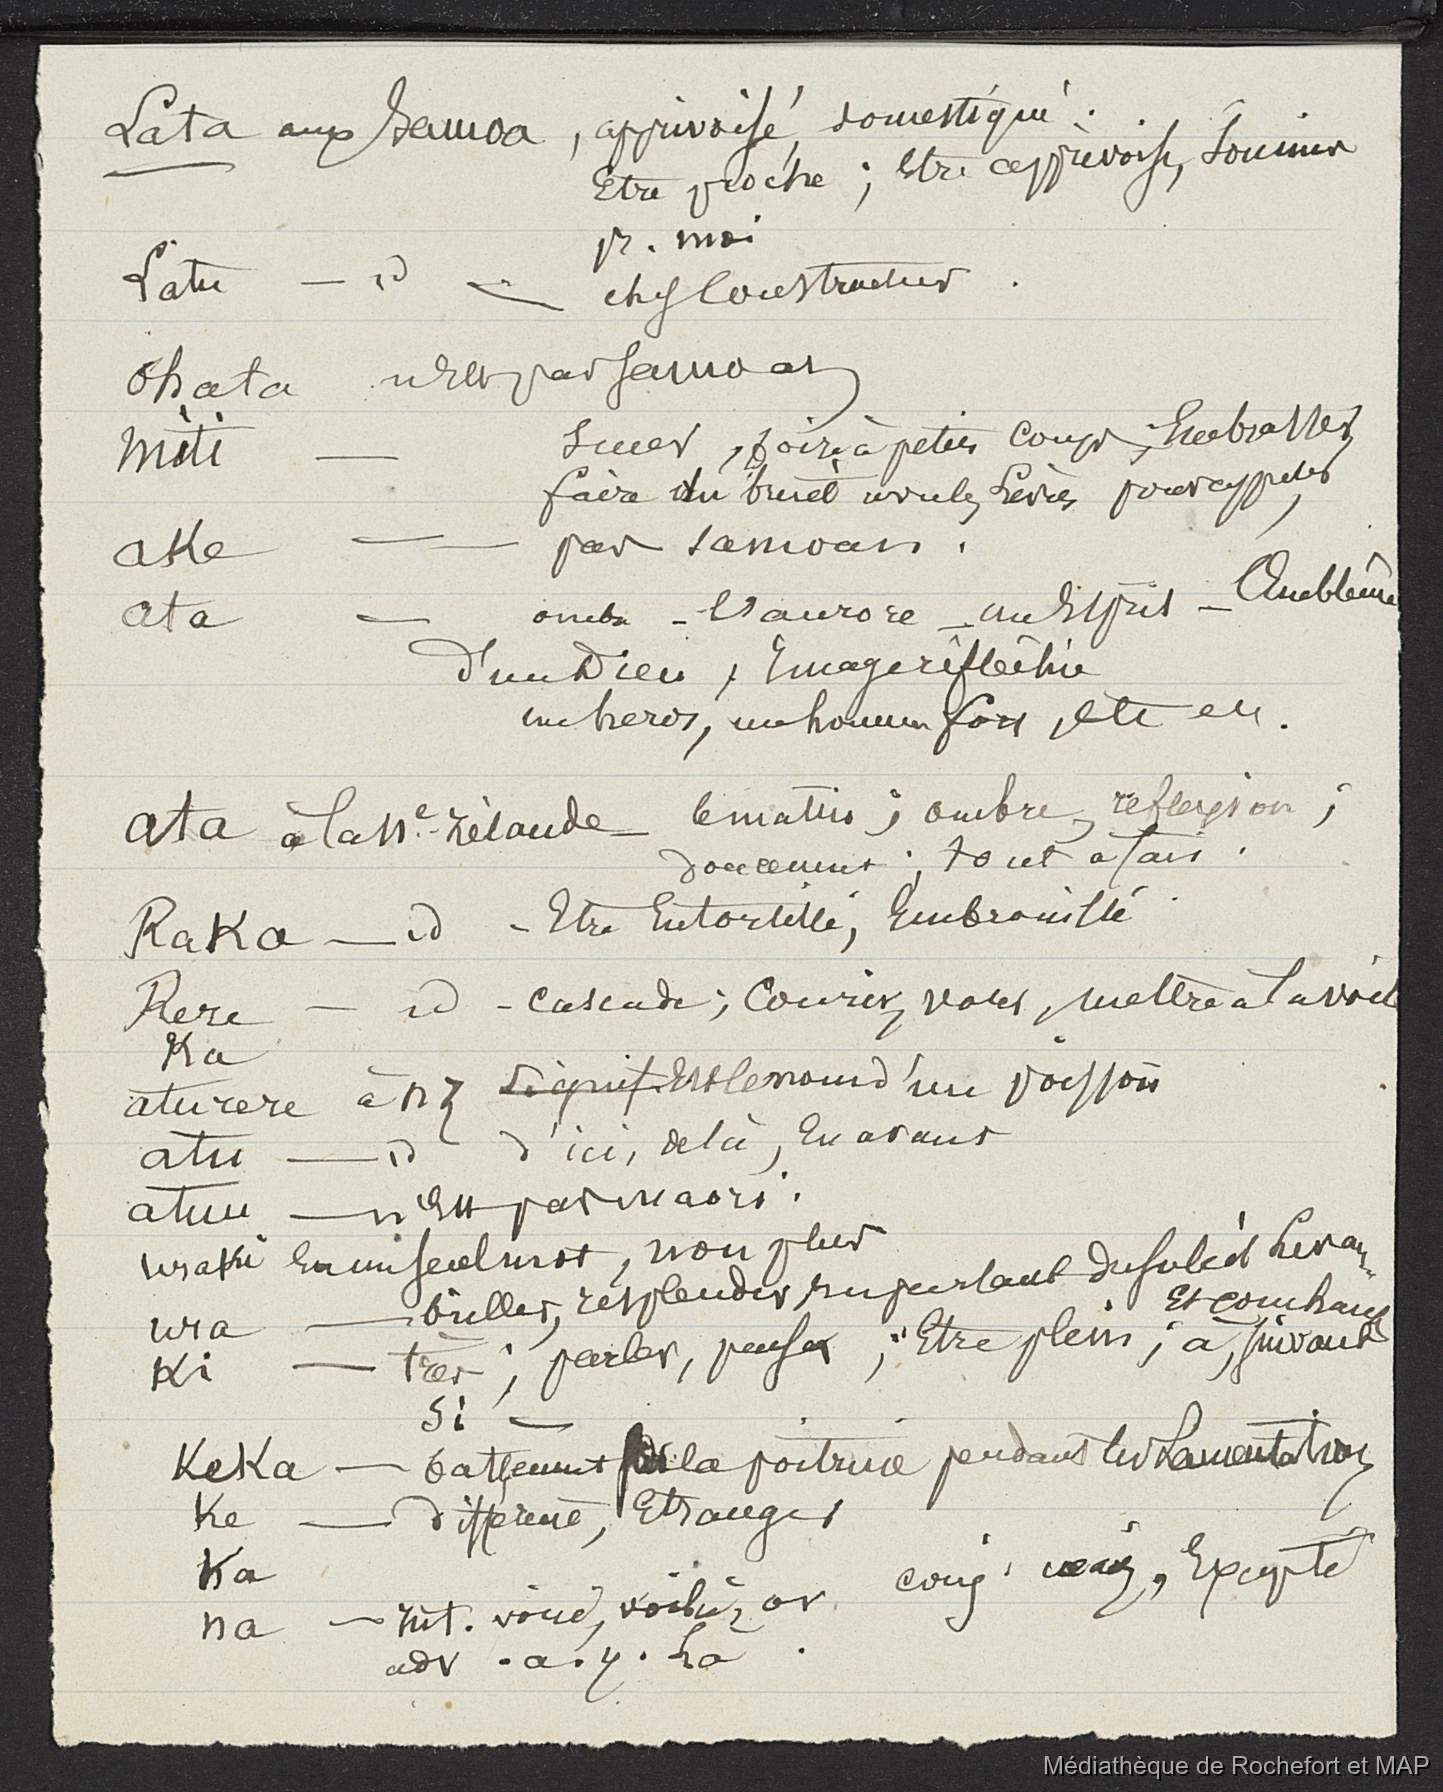 Lata aux Samoa, apprivoisé, domestiqué.
Etre proche ; etre apprivoisé, soumis
pr. moi
Latu — id — chef constructeur.
Ohata n'est pas samoan
Miti — sucer, boire à petits coups, Embrasser,
faire du bruit avec les lèvres pour appeler
aKe — — pas samoan.
ata — ombre - l'aurore - un Esprit - Emblème
d'un Dieu, Image réfléchie
un heros, un homme fort, etc etc.
ata à la Nle-Zélande - le matin ; ombre, reflexion ;
doucement ; tout à fait.
RaKa — id - Etre Entortillé, Embrouillé
Rere — id - cascade ; Courir, voler, mettre à la voile
Ka
aturere à NZ signif. Est le nom d'un poisson
atu — id d'ici, delà, En avant
atuu — n'Est pas maori.
uraKi En un seul mot, non plus
ura — briller, resplendir, en parlant du soleil levant
Et couchant
Ki — très ; parler, penser ; Etre plein ; à, suivant
Si —
KeKa — battement de la poitrine pendant les Lamentations
Ke — différent, Etranger
Ka
conj. Excepté
na — int. voici, voilà, or
adv. a. y. La.
Médiathèque de Rochefort et MAP